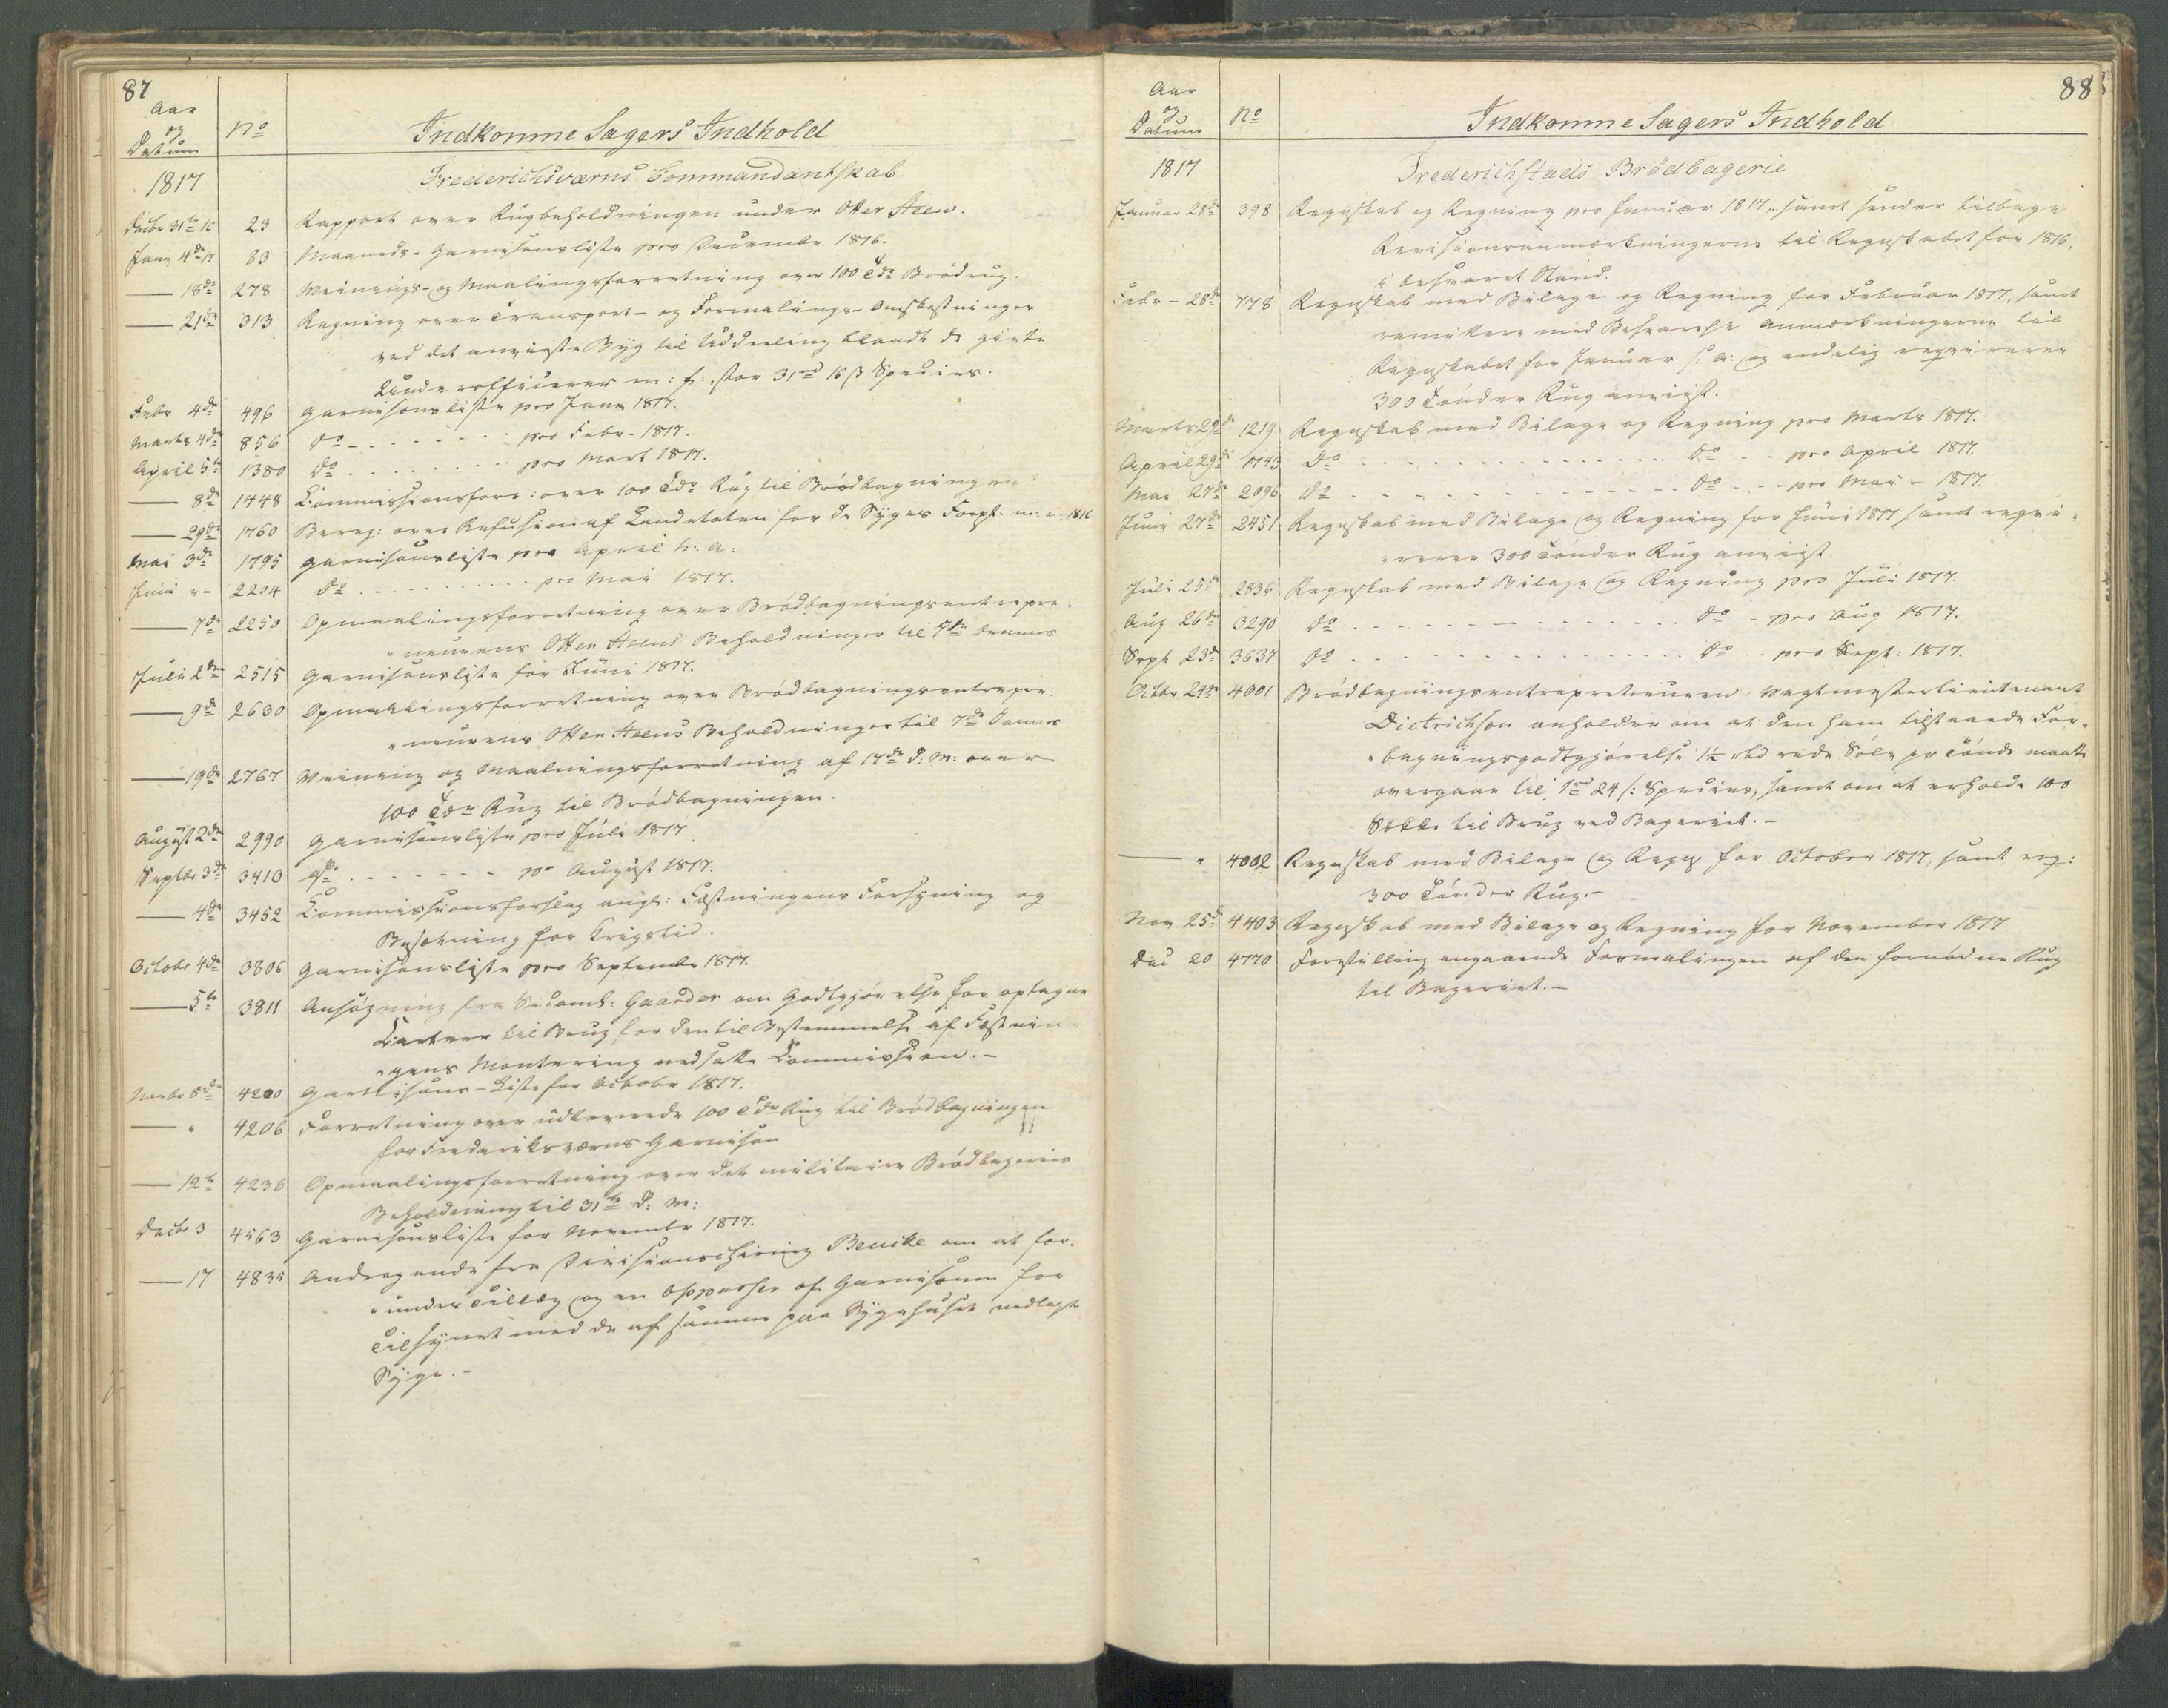 87
Aar
og
Datum
No
Indkomne Sagers Indhold
1817
Frederichsværns Commandantskab.
Decbr 31te 16 23 Rapport over Rugbeholdningen under Otter Steen.
Janu 4de 17 83 Maaneds-Garnisonsliste pro December 1816.
— 18de 278 Veinings- og Maalingsforretning over 100 Tdr Brödrug.
— 21de 313 Regning over Transport- og Formalings-Omkostninger
ved det anviiste Byg til Uddeeling blandt de givte
Underofficierer m: fl: stor 31rd 16 s Species.
Febr 4de 496 Garnisonsliste pro Janu 1817.
Marts 4de 856 do - - - - - - pro Febr. 1817.
April 5te 1380 do - - - - - - pro Mart 1817.
— 8de 1448 Commissionsforr: over 100 Tdr Rug til Brödbagningen
— 29de 1760 Bereg: over Refusion af Landetaten for de Syges Forpl. m: v: 1816
Mai 3de 1795 Garnisonsliste pro April h: a:
Juni " - 2204 do - - - - - - pro Mai 1817.
— 7de 2250 Opmaalingsforretning over Brödbagningsentrepre-
"neurens Otter Steens Beholdninger til 7de dennes
Juli 2de 2515 Garnisonsliste for Juni 1817.
— 9de 2630 Opmaalingsforretning over Brödbagningsentrepre-
"neurens Otter Steens Beholdninger til 7de dennes
— 19de 2767 Veining og Maalningsforretning af 17de d: M: over
100 Tdr Rug til Brödbagningen.
August 2de 2990 Garnisonsliste pro Juli 1817.
Septbr 3de 3410 do - - - - - - pro August 1817.
— 4de 3452 Commissionsforslag angl: Fæstningens Forsyning og
Besætning for Krigstid.
Octobr 4de 3806 Garnisonsliste pro September 1817.
— 5te 3811 Ansögning fra Gaarder om Godtgjörelse for optagne
Carter til Brug for den til Bestemmelse af Fæstnin-
"gens Montering nedsatte Commission.-
Novbr 8de 4200 Garnisons-Liste for Octobr 1817.
— " 4206 Forretning over udleverede 100 Tdr Rug til Brödbagningen
for Frederiksværns Garnison
— 12te 4236 Opmaalingsforretning over det militaire Brödbageries
Beholdning til 31te d: M:
Decbr 3 4563 Garnisonsliste for November 1817.
— 17 4835 Andragende fra Divisionschirurg Bencke om at for-
"undes Tillæg og en Oppasser af Garnisonen for
Tilsynet med de af samme paa Sygehuset indlagte
Syge.-
88
Aar
og
Datum
No
Indkomne Sagers Indhold
1817
Frederichstads Brödbagerie
Januar 28de 398 Regnskab og Regning pro Januar 1817, samt sender tilbage
Revisionsanmærkningerne til Regnskabet for 1816,
i besvaret Stand.
Febr - 28de 778 Regnskab med Bilage og Regning for Februar 1817, samt
remitterer med Besvarelse Anmærkningerne til
Regnskabet for Januar s: a: og endelig reqvirerer
300 Tönder Rug anviist.
Marts 29de 1219 Regnskab med Bilage og Regning pro Marts 1817.
April 29de 1743 do - - - - - - do - - pro April 1817.
Mai 27de 2096 do - - - - - - do - - pro Mai - 1817.
Juni 27de 2451 Regnskab med Bilage og Regning for Juni 1817 samt reqvi-
"rerer 300 Tönder Rug anviist.
Juli 25de 2836 Regnskab med Bilage og Regning pro Juli 1817.
Aug 26de 3290 do - - - - - - do - pro Aug 1817.
Sept 23de 3637 do - - - - - - do - - pro Sept: 1817.
Octbr 24de 4001 Brödbagningsentrepreneuren Vagtmesterlieutenant
Dietrichson anholder om at den ham tilstaaede For-
"bagningsgodtgjörelse 1½ rbd rede Sölv pr Tönde maatte
overgaae til 1rd 24 s: Species, samt om at erholde 100
Sække til Brug ved Bageriet.-
— " 4002 Regnskab med Bilage og Regng for October 1817, samt req:
300 Tönder Rug.-
Nov 25de 4403 Regnskab med Bilage og Regning for November 1817
Dec 20 4770 Forestilling angaaende Formalingen af den fornödne Rug
til Bageriet.-